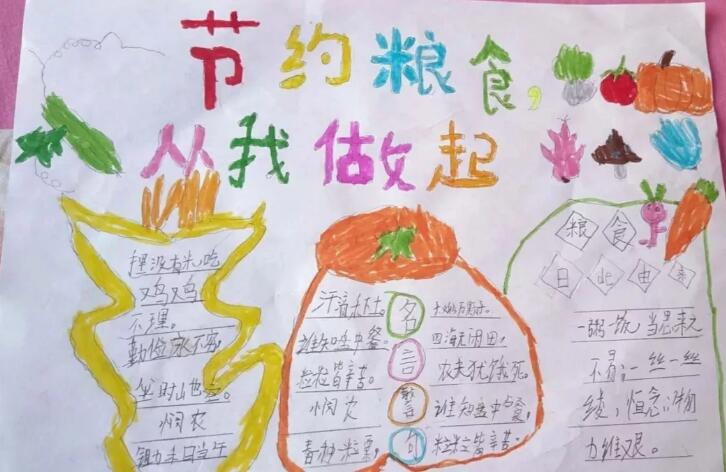 节约粮食,
从我做起
不理。
勤俭永不穷
坐时山也空。
悯农
锄禾日当午
名言警句
汗滴禾土。
谁知盘中餐。
粒粒皆辛苦。
悯农
春种一粒粟,
四海无闲田,
农夫犹饿死。
谁知盘中餐,
粒粒皆辛苦。
粮食
日的由来
一粥一饭,当思来
不易;一丝一丝
缕,恒念物
力维艰。